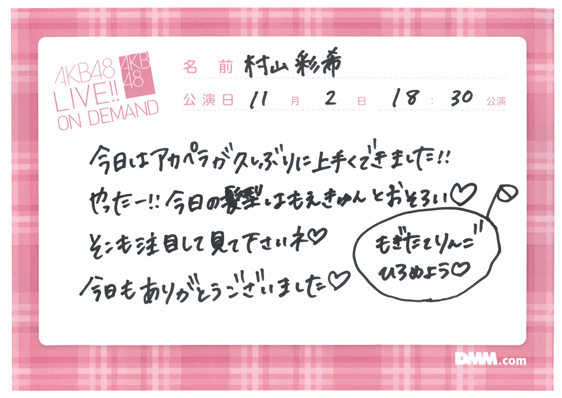 AKB48
LIVE!!
ON DEMAND
AKB
48
名 前 村山彩希
公演日 11 月 2 日 18 : 30 公演
今日はアカペラが久しぶりに上手くできました!!
やったー!!今日の髪型はもえきゅんとおそろい♡
そこも注目して見て下さいネ♡
今日もありがとうございました♡
もぎたてりんご
ひろめよう♡
DMM.com